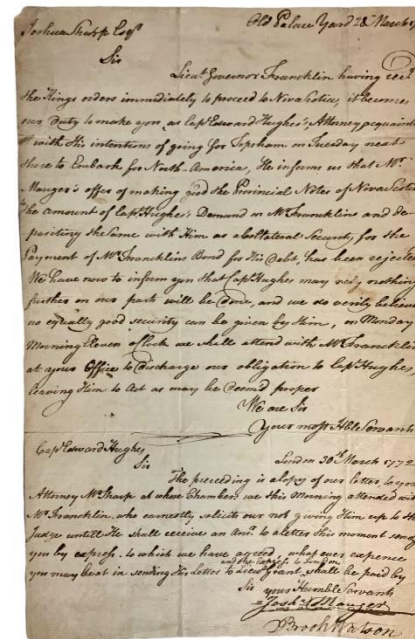 Old Palace Yard 28 March 17
Joshua Sharp Esqr
Sir
Lieut Governor Francklin having recd
the Kings orders immediately to proceed to Nova Scotia, it becomes
our Duty to make you, as Capt Edward Hughes's, Attorney acquainted
with His intentions of going for Topsham on Tuesday next
there to Embark for North-America, He informs us that Mr
Mauger's offer of making good the Provincial Notes of Nova Scotia
the amount of Capt Hughes's Demand on Mr Francklin and de
positing the Same with Him as a Collateral Security, for the
Payment of Mr Francklins Bond for His Debt, has been rejected
We have now to inform you that Capt Hughes may rely nothing
further on our part will be done, and we do verily believe
no equally good security can be given by Him, on Monday
Morning Eleven oClock we shall attend with Mr Francklin
at your Office to Discharge our obligation to Capt Hughes,
leaving Him to Act as may be Deem'd proper
We are Sir
Your most Hble Servants
Capt Edward Hughes
London 30th March 1772
Sir
The preceding is a Copy of our letter to your
Attorney Mr Sharp at whose Chambers we this Morning attended with
Mr Francklin, who earnestly solicits our not giving Him up to the
Judge untill He shall receive an Ansr to a letter this moment sending
you by express. to which we have agreed, what ever expence
and the Express to London
you may be at in sending His Letter to Lieut Grant shall be paid by
Sir your Humble Servants
Josh Mauger
Brook Watson